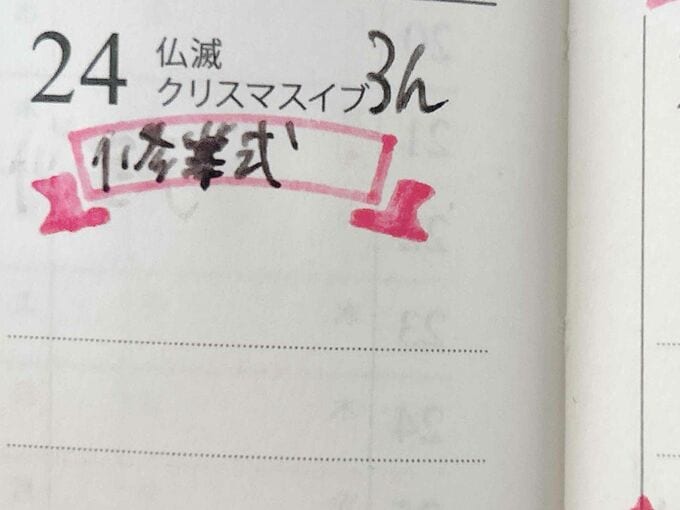 24 仏滅
クリスマスイブ 3h
修業式
23
24